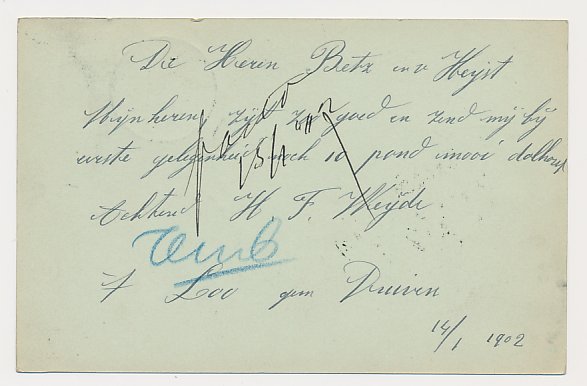 Die Heren Betz en v Heyst
Mijnheren, Zijt zoo goed en zend mij bij
eerste gelegenheid noch 10 pond mooi dalhout
Achtend H F. Weijde
t Loo gem Duiven
14/1 1902
15/1